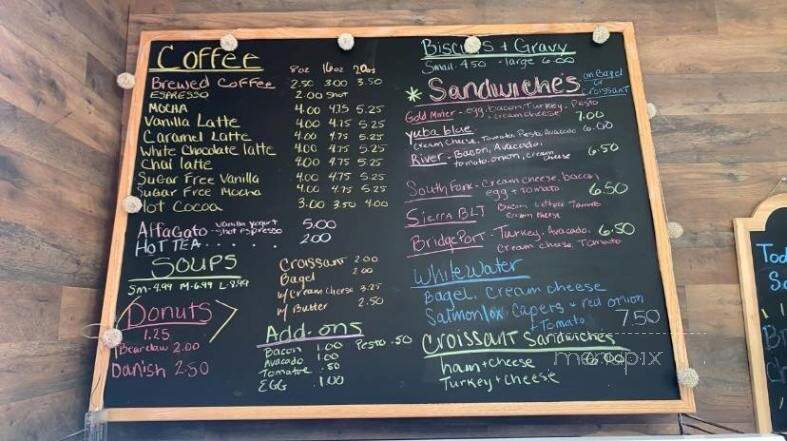 Coffee
8oz 16oz 20oz
Brewed Coffee 2.50 3.00 3.50
Espresso 2.00 Shot
Mocha 4.00 4.75 5.25
Vanilla Latte 4.00 4.75 5.25
Caramel Latte 4.00 4.75 5.25
White Chocolate latte 4.00 4.75 5.25
Chai latte 4.00 4.75 5.25
Sugar Free Vanilla 4.00 4.75 5.25
Sugar Free Mocha 4.00 4.75 5.25
Hot Cocoa 3.00 3.50 4.00
Affagato vanilla yogurt + shot espresso 5.00
HOT TEA . . . . . . 2.00
Soups
Sm-4.99 M-6.99 L-8.99
Donuts
1.25
Bearclaw 2.00
Danish 2.50
Croissant 2.00
Bagel 2.00
w/Cream Cheese 3.25
w/ Butter 2.50
Add-ons
Bacon 1.00 Pesto .50
Avocado 1.00
Tomatoe .50
EGG 1.00
Biscuits + Gravy
Small 4.50 - large 6.00
* Sandwiche's on Bagel or Croissant
Gold Miner - egg, bacon, Turkey, Pesto
cream cheese 7.00
yuba blue
Cream cheese, Tomato, Pesto, Avocado 6.00
River - Bacon, Avocado,
tomato, onion, cream cheese 6.50
South Fork - Cream cheese, bacon
egg + tomato 6.50
Sierra BLT Bacon Lettuce Tomato
Cream Cheese
BridgePort - Turkey, Avocado, 6.50
Cream cheese, Tomato
White Water
Bagel, Cream cheese
Salmon lox, Capers + red onion
+ Tomato 7.50
Croissant Sandwiches
ham + cheese 6.00
Turkey + cheese
menupix
Tod
So
Br
Ch